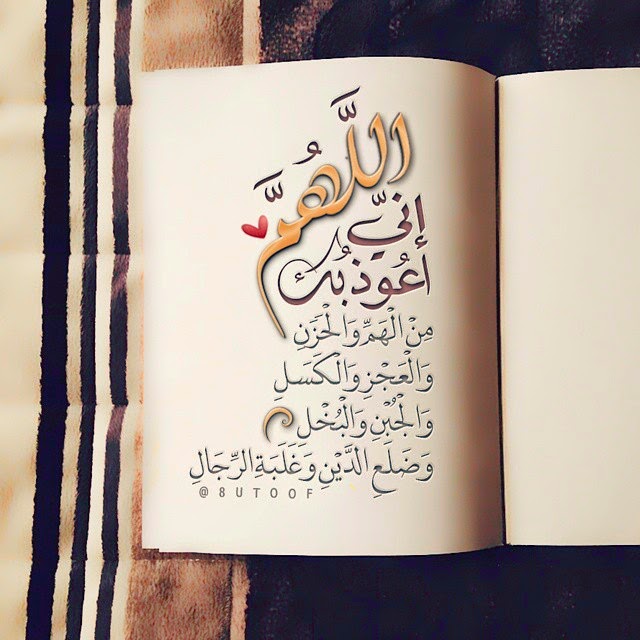 اللَّهُمَّ
إنيّ
اعُوذبُك
مِنْ الْهَمِّ وَالْحَزَنِ
وَالْعَجْزِ وَالْكَسَلِ
وَالْجُبْنِ وَالْبُخْلِ
وَضَلَعِ الدَّيْنِ وَغَلَبَةِ الرِّجَالِ
@8UTOOF